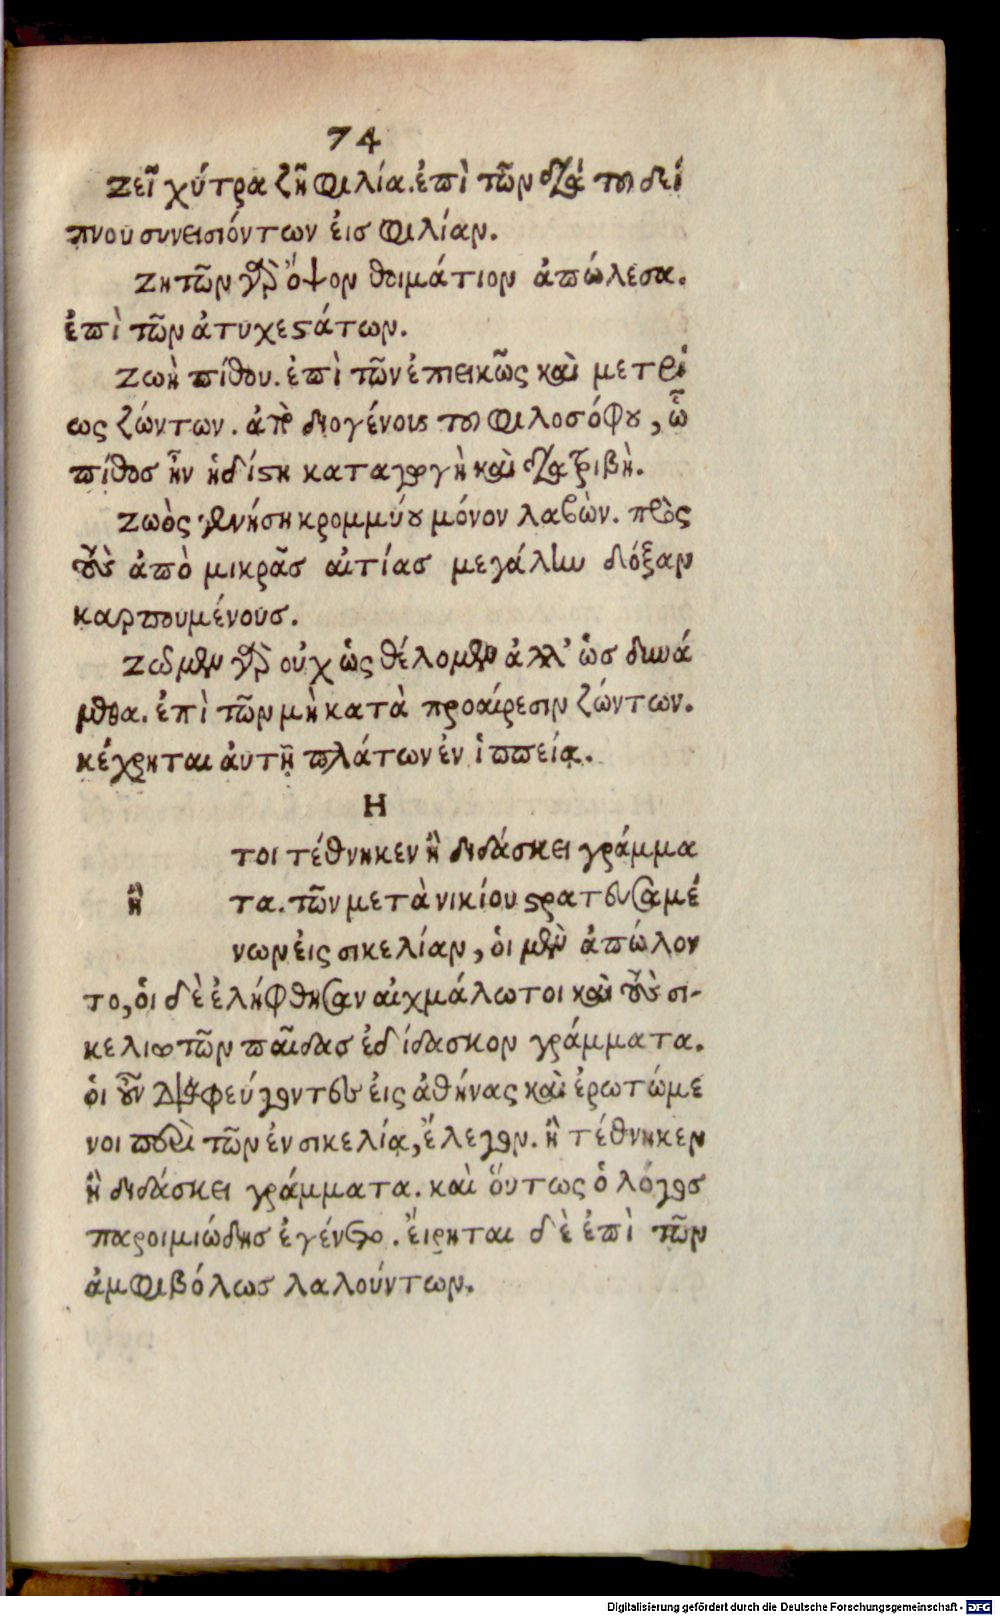 74
Ζεῖ χύτρα ζῇ φιλία. ἐπὶ τῶν διὰ τοῦ δεί
πνου συνεισιόντων εἰς φιλίαν.
Ζητῶν γὰρ ὄψον θοιμάτιον ἀπώλεσα.
ἐπὶ τῶν ἀτυχεστάτων.
Ζωὴ πίθου. ἐπὶ τῶν ἐπιεικῶς καὶ μετρί
ως ζώντων. ἀπὸ διογένους τοῦ φιλοσόφου, ὧ
πίθος ἦν ἡδίστη καταγωγὴ καὶ διατριβὴ.
Ζωὸς γενήση κρομμύου μόνον λαβὼν. πρὸς
τοὺς ἀπὸ μικρᾶς αἰτίας μεγάλην δόξαν
καρπουμένους.
Ζῶμεν γὰρ οὐχ ὡς θέλομεν ἀλλ' ὡς δυνά
μεθα. ἐπὶ τῶν μὴ κατὰ προαίρεσιν ζώντων.
κέχρηται ἀυτῇ πλάτων ἐν ἱππεία.
Η
τοι τέθνηκεν ἢ διδάσκει γράμμα
ἢ τα. τῶν μετὰ νικίου στρατευσαμέ
νων εἰς σικελίαν, ὁι μὲν ἀπώλον
το, ὁι δὲ ἐλήφθησαν αἰχμάλωτοι καὶ τοὺς σι-
κελιωτῶν παῖδας ἐδίδασκον γράμματα.
ὁι οὖν διαφεύγοντες εἰς ἀθήνας καὶ ἐρωτώμε
νοι περὶ τῶν ἐν σικελία, ἔλεγον. ἢ τέθνηκεν
ἢ διδάσκει γράμματα. καὶ ὅυτως ὁ λόγος
παροιμιώδης ἐγένετο. ἔιρηται δὲ ἐπὶ τῶν
ἀμφιβόλως λαλούντων.
Digitalisierung gefördert durch die Deutsche Forschungsgemeinschaft - DFG